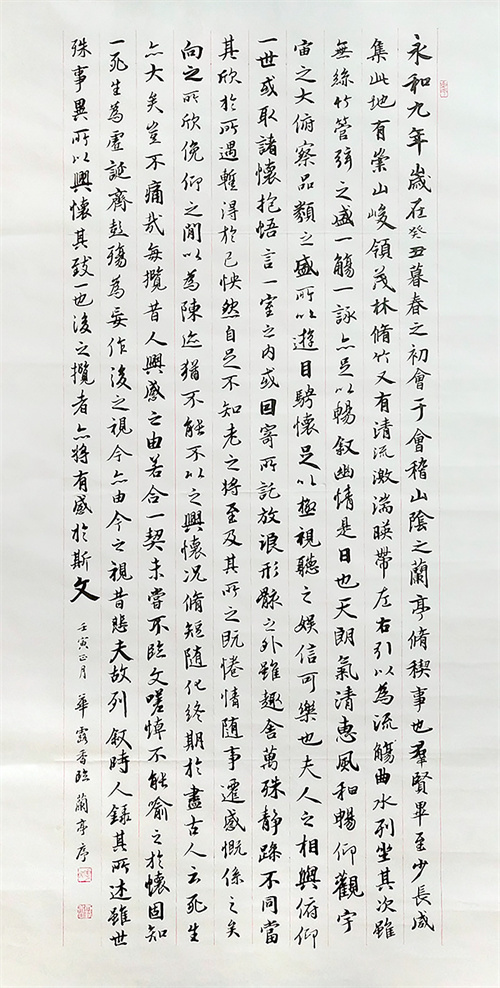 永和九年歲在癸丑暮春之初會于會稽山陰之蘭亭脩稧事也羣賢畢至少長咸
集此地有崇山峻領茂林脩竹又有清流激湍暎帶左右引以為流觴曲水列坐其次雖
無絲竹管弦之盛一觴一詠亦足以暢叙幽情是日也天朗氣清惠風和暢仰觀宇
宙之大俯察品類之盛所以遊目騁懷足以極視聽之娛信可樂也夫人之相與俯仰
一世或取諸懷抱悟言一室之內或因寄所託放浪形骸之外雖趣舍萬殊靜躁不同當
其欣於所遇蹔得於己怏然自足不知老之將至及其所之既惓情隨事遷感慨係之矣
向之所欣俛仰之閒以為陳迹猶不能不以之興懷况脩短隨化終期於盡古人云死生
亦大矣豈不痛哉每攬昔人興感之由若合一契未嘗不臨文嗟悼不能喻之於懷固知
一死生為虛誕齊彭殤為妄作後之視今亦由今之視昔悲夫故列叙時人錄其所述雖世
殊事異所以興懷其致一也後之攬者亦將有感於斯文 壬寅正月 華露香臨蘭亭序